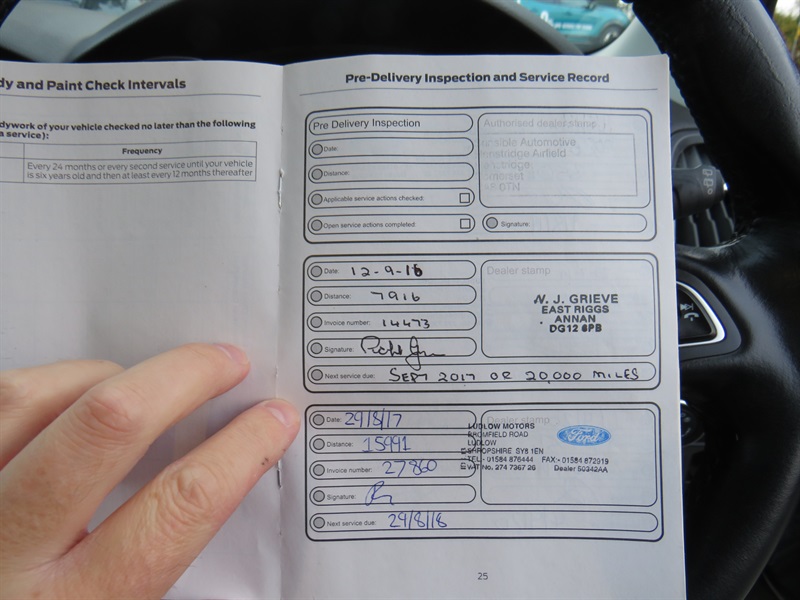 dy and Paint Check Intervals
dywork of your vehicle checked no later than the following
a service):
Frequency
Every 24 months or every second service until your vehicle
is six years old and then at least every 12 months thereafter
Pre-Delivery Inspection and Service Record
Pre Delivery Inspection
Date:
Distance:
Applicable service actions checked:
Open service actions completed:
Authorised dealer stamp
Automotive
Airfield
0TN
Signature:
Date: 12-9-16
Distance: 7916
Invoice number: 14473
Signature:
Next service due: SEPT 2017 OR 20,000 MILES
Dealer stamp
W. J. GRIEVE
EAST RIGGS
ANNAN
DG12 6PB
Date: 29/8/17
Distance: 15991
Invoice number: 27860
Signature:
Next service due: 29/8/18
Dealer stamp
LUDLOW MOTORS
BROMFIELD ROAD
LUDLOW
SHROPSHIRE SY8 1EN
TEL - 01584 876444 FAX - 01584 872919
VAT No. 274 7367 26 Dealer 50342AA
Ford
25